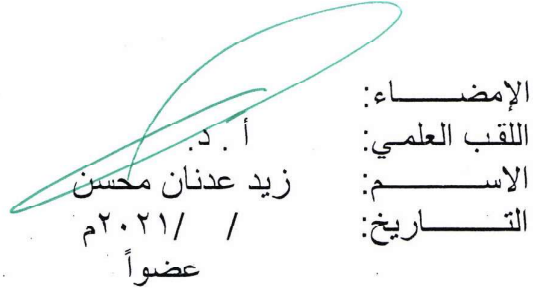 الإمضـــــــاء:
اللقب العلمي: أ . د.
الاســـــــم: زيد عدنان محسن
التـــــــاريخ: / /٢٠٢١م
عضواً